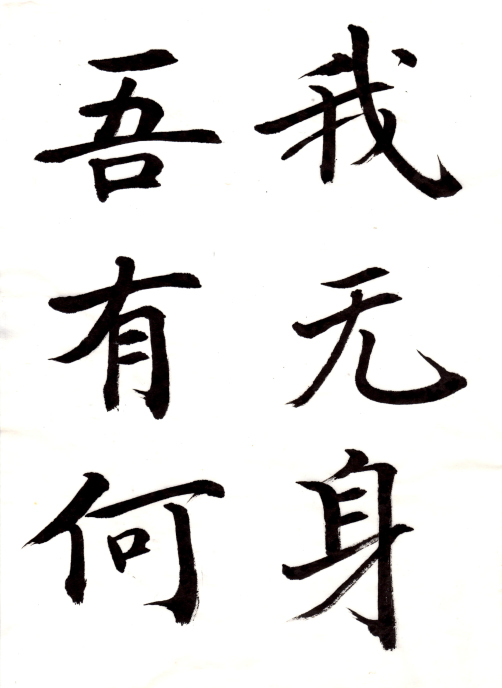 我无身
吾有何